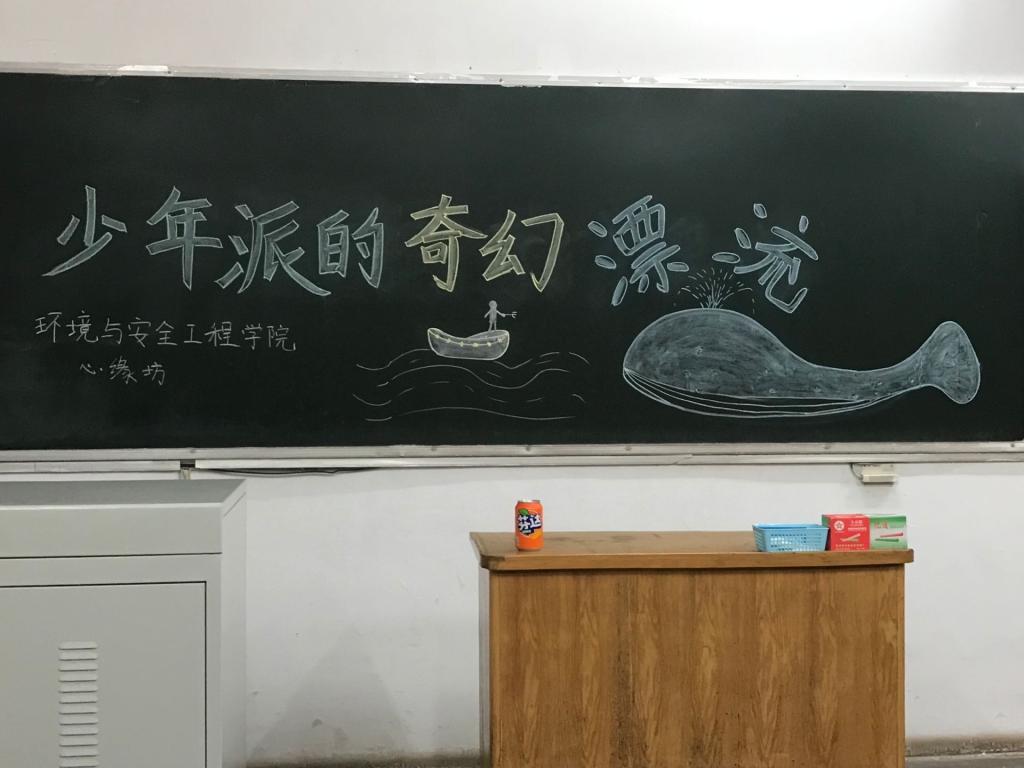 少年派的奇幻漂流
环境与安全工程学院
心缘坊
芬达